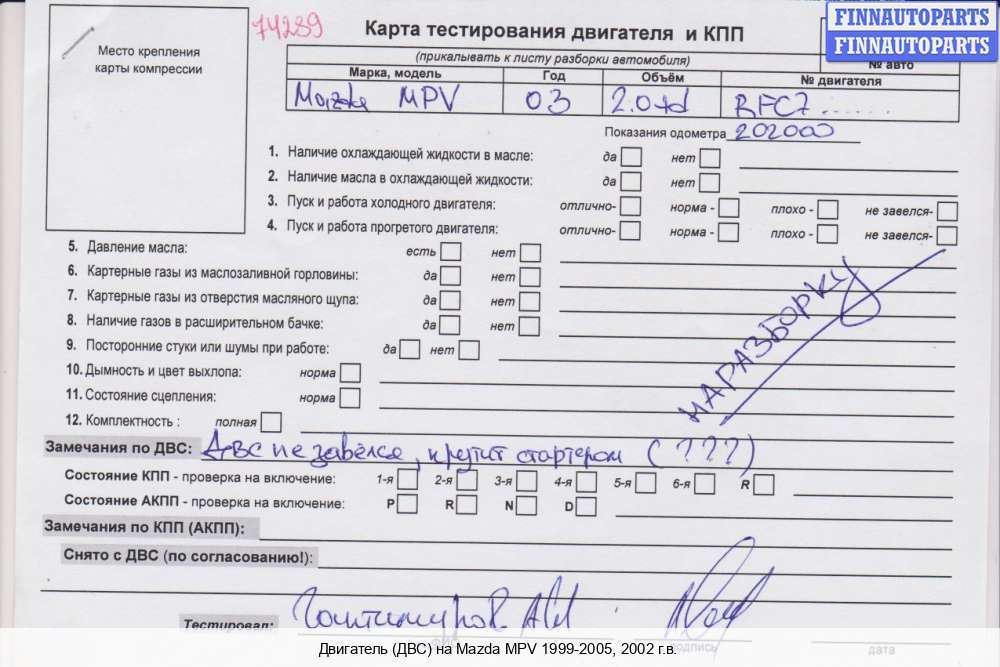 FINNAUTOPARTS
FINNAUTOPARTS
74289
Карта тестирования двигателя и КПП
(прикалывать к листу разборки автомобиля)
№ авто
Место крепления
карты компрессии
Марка, модель Год Объём № двигателя
Mazda MPV 03 2.0td RFC7......
Показания одометра 202000
1. Наличие охлаждающей жидкости в масле: да нет
2. Наличие масла в охлаждающей жидкости: да нет
3. Пуск и работа холодного двигателя: отлично- норма - плохо - не завелся-
4. Пуск и работа прогретого двигателя: отлично- норма - плохо - не завелся-
5. Давление масла: есть нет
6. Картерные газы из маслозаливной горловины: да нет
7. Картерные газы из отверстия масляного щупа: да нет
8. Наличие газов в расширительном бачке: да нет
9. Посторонние стуки или шумы при работе: да нет
10. Дымность и цвет выхлопа: норма
11. Состояние сцепления: норма
12. Комплектность : полная
НА РАЗБОРКУ
Замечания по ДВС: ДВС не завёлся, крутит стартером (???)
Состояние КПП - проверка на включение: 1-я 2-я 3-я 4-я 5-я 6-я R
Состояние АКПП - проверка на включение: P R N D
Замечания по КПП (АКПП):
Снято с ДВС (по согласованию!):
Тестировал:
подпись дата
Двигатель (ДВС) на Mazda MPV 1999-2005, 2002 г.в.